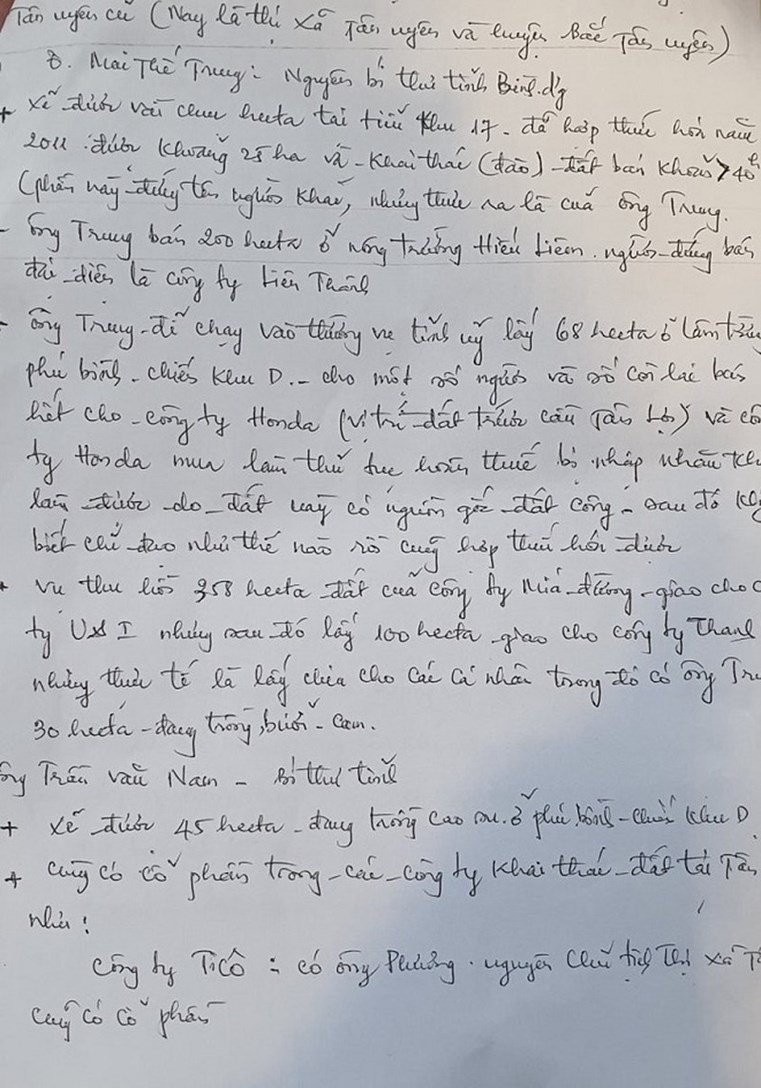 Tân uyên cũ (Nay là thị xã Tân uyên và huyện Bắc Tân uyên)
8. Mai Thế Trung: Nguyên bí thư tỉnh Bình.dg
+ xẽ được vài chục hecta tại tiểu khu 17 - đã hợp thức hóa năm
2011 được khoảng 25 ha và khai thác (đào) đất bán khoảng > 40
(phần này đứng tên người khác, nhưng thực ra là của ông Trung.
- ông Trung bán 200 hecta ở nông trường Hiếu Liêm. người đứng bán
đại diện là công ty Liên Thành
- ông Trung để chạy vào thường vụ tỉnh uỷ lấy 68 hecta ở Lâm
phú bình - chiến khu D. - cho một số người và số còn lại bán
hết cho công ty Honda (vị trí đất trước cầu Tân Lợi) và
ty Honda mua làm thủ tục hoán thuế bị nhập nhằn
làm được do đất này có nguồn gốc đất công - sau đó
biết chỉ đạo như thế nào rồi cũng hợp thức hóa được
+ vụ thu hồi 358 hecta đất của công ty Mía đường - giao cho
ty U&I nhưng sau đó lấy 100 hecta giao cho công ty Thanh
nhưng thực tế là lấy chia cho các cá nhân trong đó có ông
30 hecta - đang trồng bưởi - cam.
ông Trần văn Nam - Bí thư tỉnh
+ xẽ được 45 hecta - đang trồng cao su. ở phú bình - chiến khu D
+ cũng có cổ phần trong các công ty khai thác đất tại Tân
như:
công ty TiCô : có ông Phương. nguyên Chủ tịch Thị xã
cũng có cổ phần